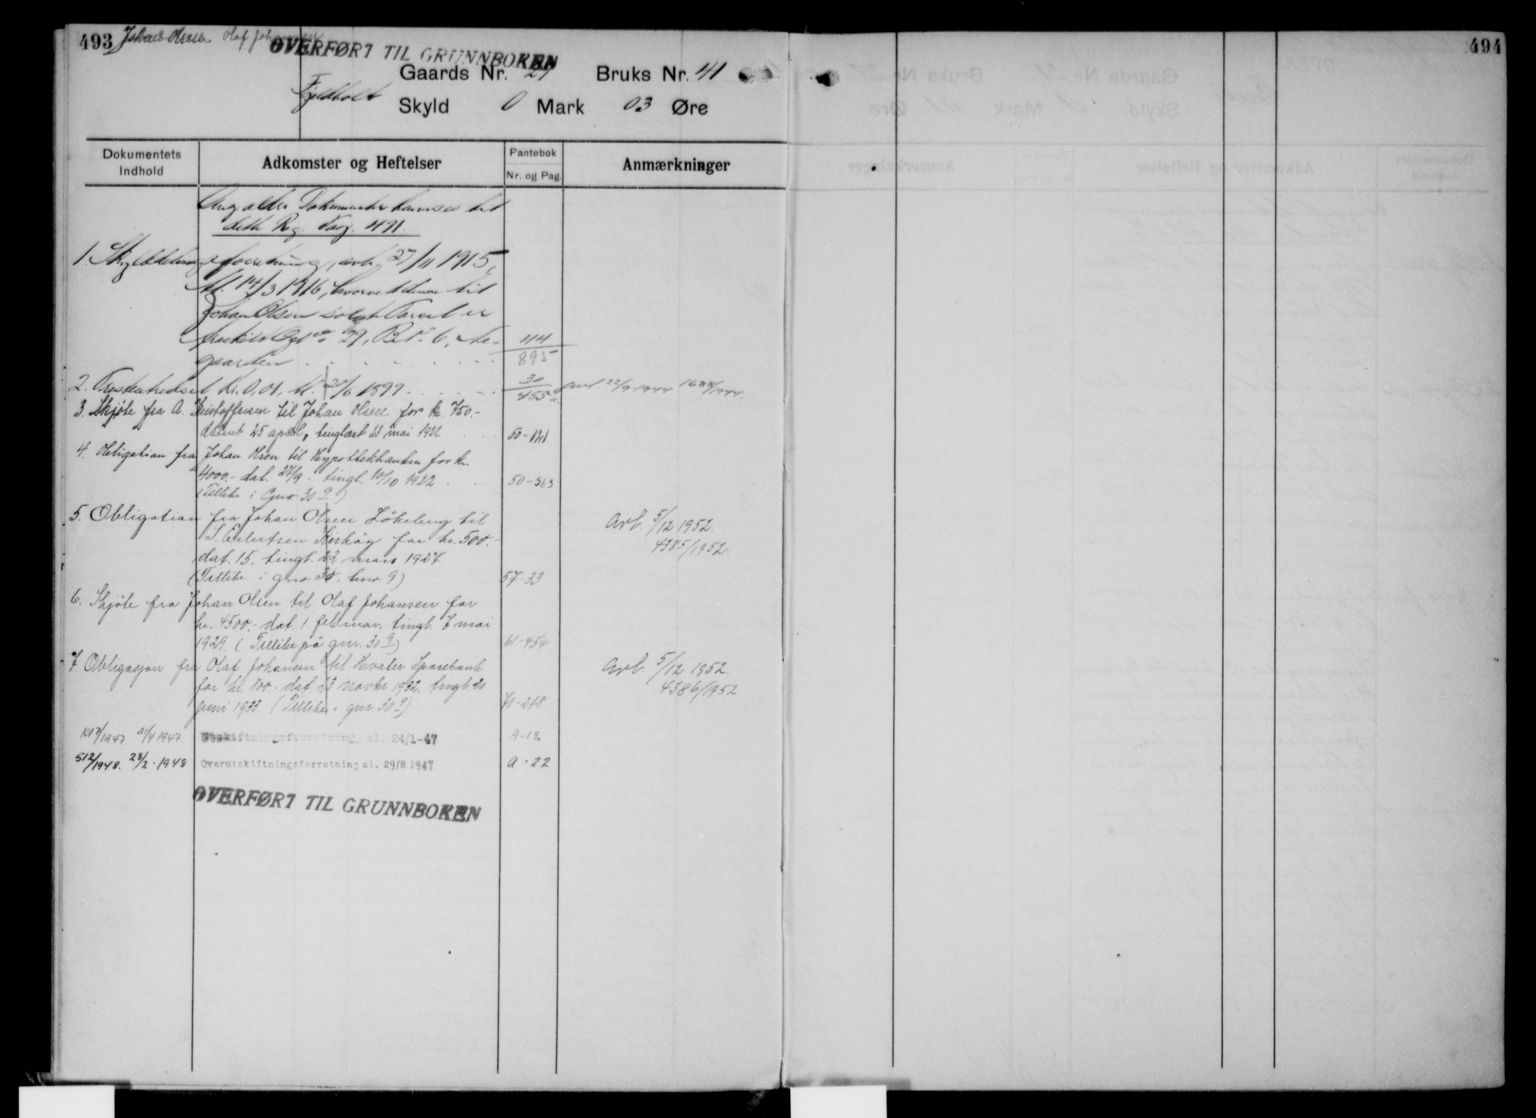 493 Johan Olsen Olaf Johansen
OVERFØRT TIL GRUNNBOKEN
Gaards Nr. 29 Bruks Nr. 41
Fjeldholt
Skyld 0 Mark 03 Øre
Dokumentets Indhold
Adkomster og Heftelser
Pantebok
Nr. og Pag.
Anmærkninger
Ang. ældre Dokumenter henvises til
dette Rg. Pag. 491
1. Skylddelingsforretning, avh. 27/11 1915,
tl. 14/3 1916, hvorved denne til
Johan Olsen solgt Parcel er
fraskilt Gr. No 29, Br. No 6,
gaarden 114
895
2. Kr. 0.01. tl. 20/6 1899 30
455 22/9 1944 1688/1944.
3. Skjøte fra A. Kristoffersen til Johan Olsen for kr. 750.-
datert 25 april, tinglæst 22 mai 1922 50-121
4. Obligation fra Johan Olsen til Hypotekbanken for kr.
4000.- dat. 27/9. tingl. 10/10 1922 50-563
(Tillike i Gno 30 9)
5. Obligation fra Johan Olsen Løkeberg til
S. Eilertsen Kirkøy for kr. 500.-
dat. 15. tingl. 22 mars 1927.
(Tillike i gno. 30. bno. 9) 57-33
Avl. 5/12 1952.
4385/1952.
6. Skjøte fra Johan Olsen til Olaf Johansen for
kr. 4500.- dat. 1 februar. tingl. 7 mai
1929. (Tillike på gnr. 30 9) 61-454
7 Obligasjon fra Olaf Johansen til Hvaler Sparebank
for kr. 800.- dat. 23 novbr 1932. tingl. 20
juni 1933. (Tillike i gnr 30 9) 70-268
Avl. 5/12 1952.
4386/1952
1017/1947 21/4 1947 Utskiftningsforretning, sl. 24/1-47 A-12
512/1948. 28/2-1948 Overutskiftningsforretning sl. 29/8 1947 A-22
OVERFØRT TIL GRUNNBOKEN
494